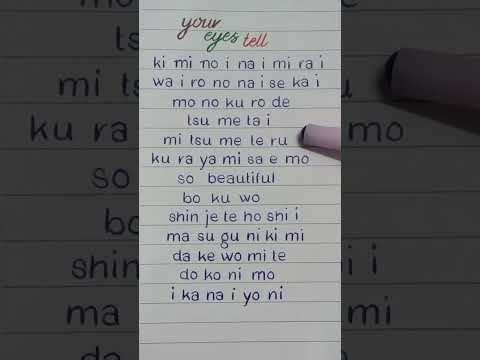 your
eyes tell
ki mi no i na i mi ra i
wa i ro no na i se ka i
mo no ku ro de
tsu me ta i
mi tsu me te ru
ku ra ya mi sa e mo
so beautiful
bo ku wo
shin je te ho shi i
ma su gu ni ki mi
da ke wo mi te
do ko ni mo
i ka na i yo ni